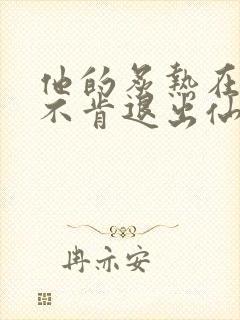 他的炙熱在
不肯退出仙
冉亦安